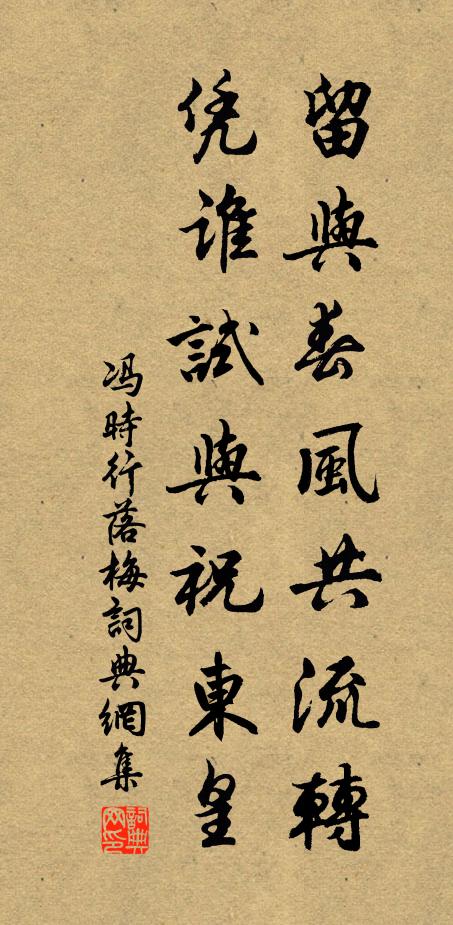 留與春風共流轉
凭誰試與祝東皇
冯時行落梅詞典網集
詞典网印